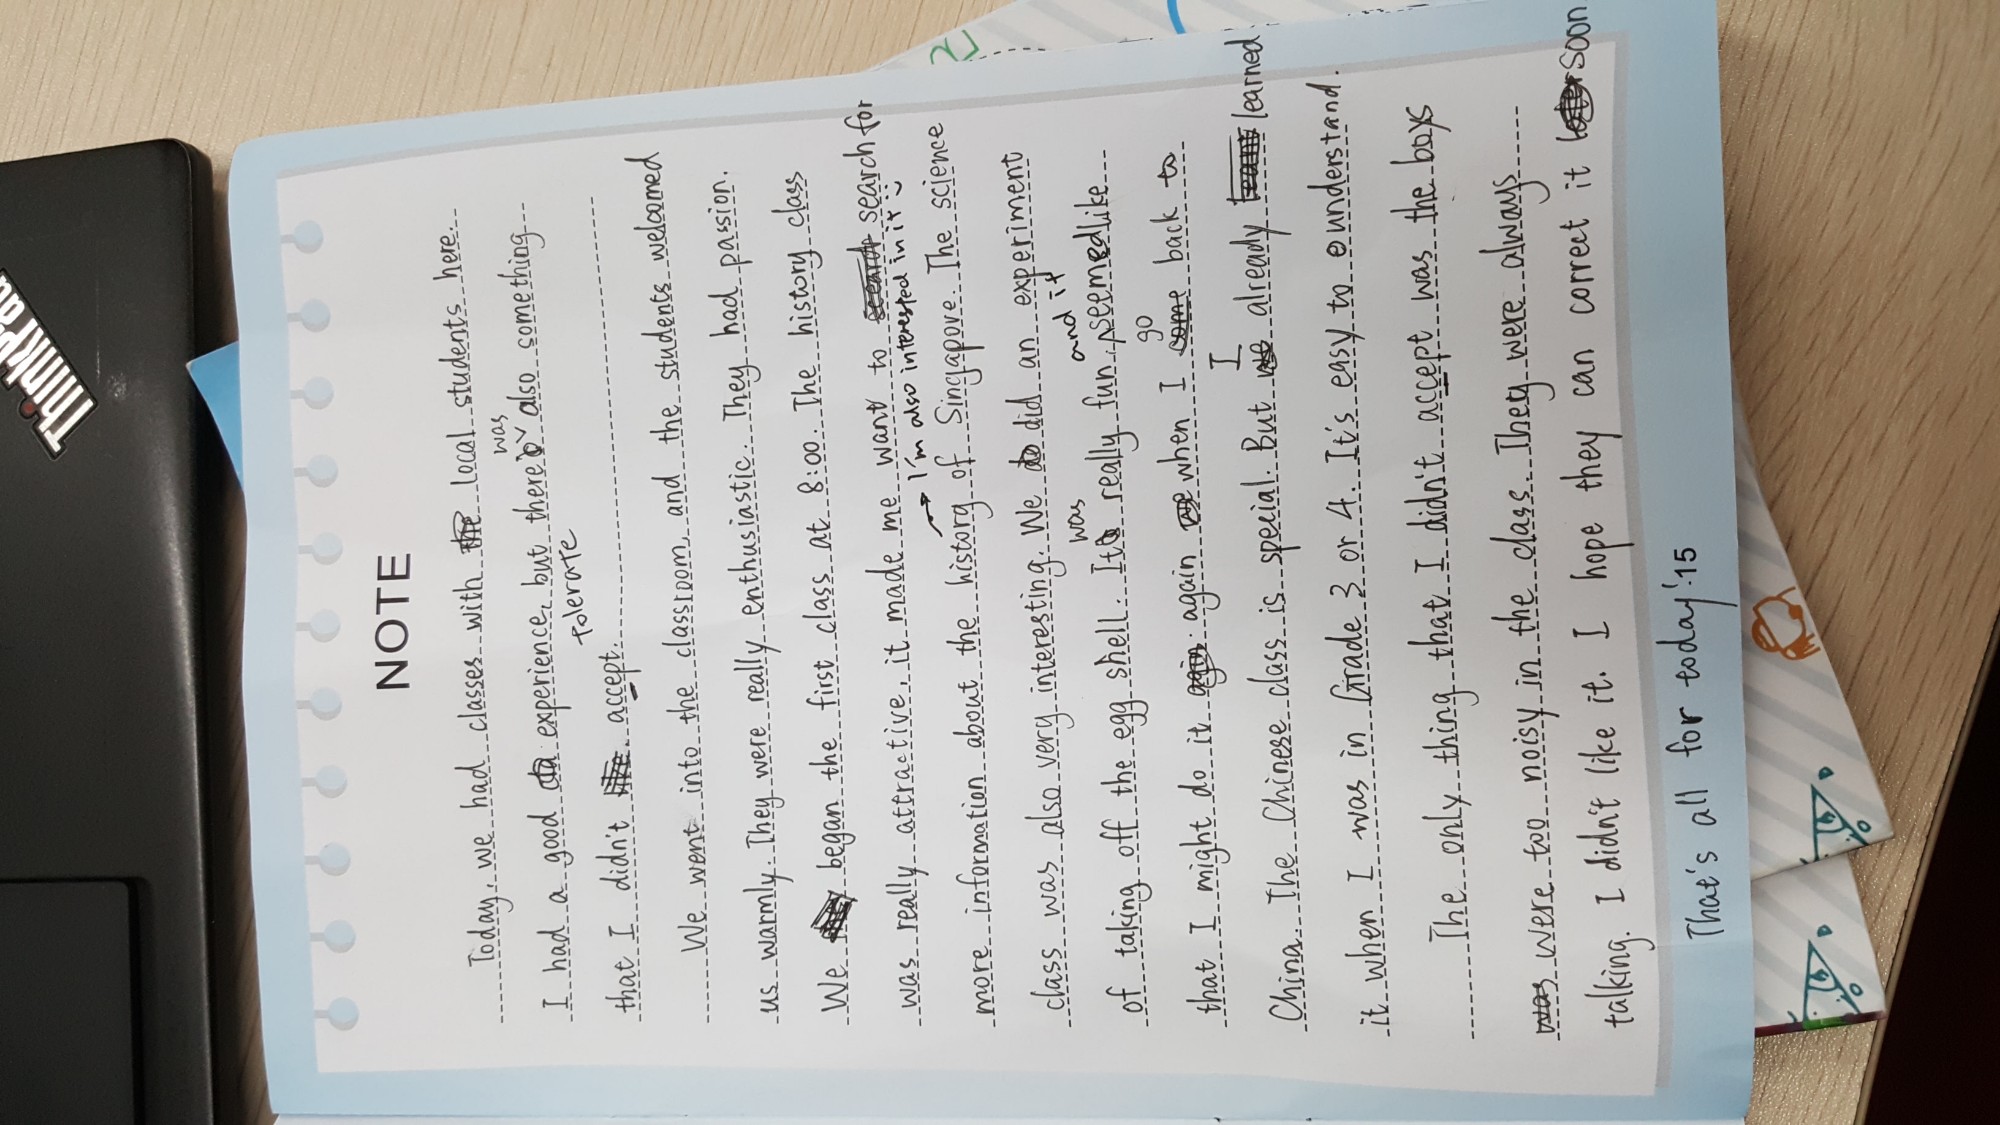 ThinkPad
NOTE
Today, we had classes with the local students here.
was
I had a good experience, but there also something
tolerate
that I didn't accept.
We went into the classroom, and the students welcomed
us warmly. They were really enthusiastic. They had passion.
We began the first class at 8:00. The history class
was really attractive, it made me want to search for
I'm also interested in it
more information about the history of Singapore. The science
class was also very interesting. We did an experiment
was and it
of taking off the egg shell. It really fun, seemed like
go
that I might do it again when I come back to
I
China. The Chinese class is special. But already learned
it when I was in Grade 3 or 4. It's easy to understand.
The only thing that I didn't accept was the boys
were too noisy in the class. They were always
talking. I didn't like it. I hope they can correct it soon
That's all for today! 15